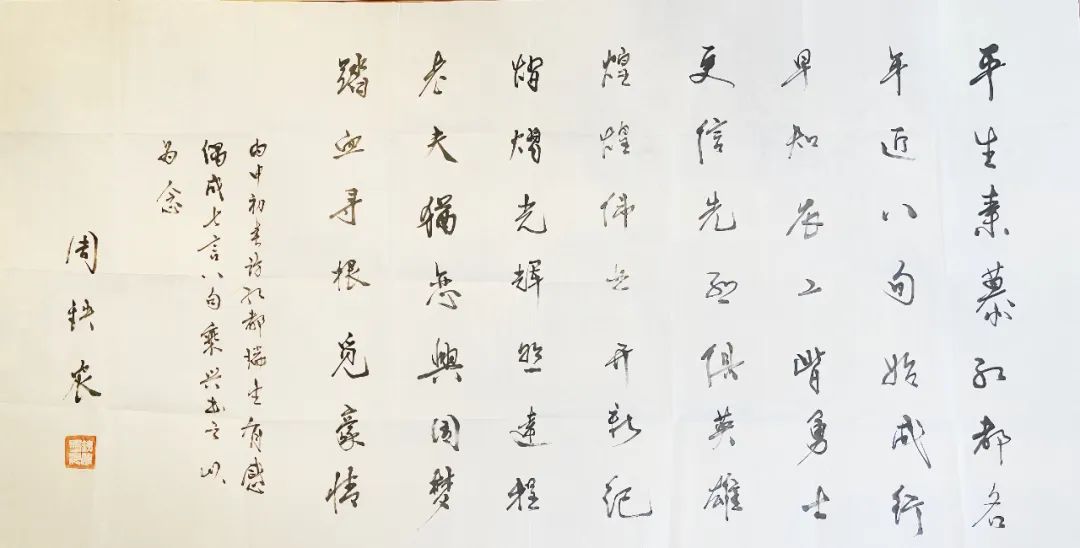 平生素慕红都名
年近八旬始成行
早知农工皆勇士
更信先烈俱英雄
煌煌伟业开新纪
熠光辉照远程
老夫猶恋興国梦
踏血寻根觅豪情
丙申初春访红都瑞金有感
偶成七言八句乘兴书之以
为念
周铁农